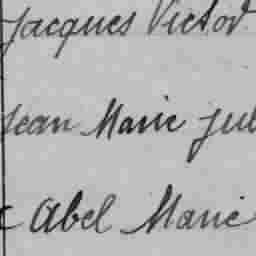 Jacques Victor
Jean Marie Jul
Abel Marie